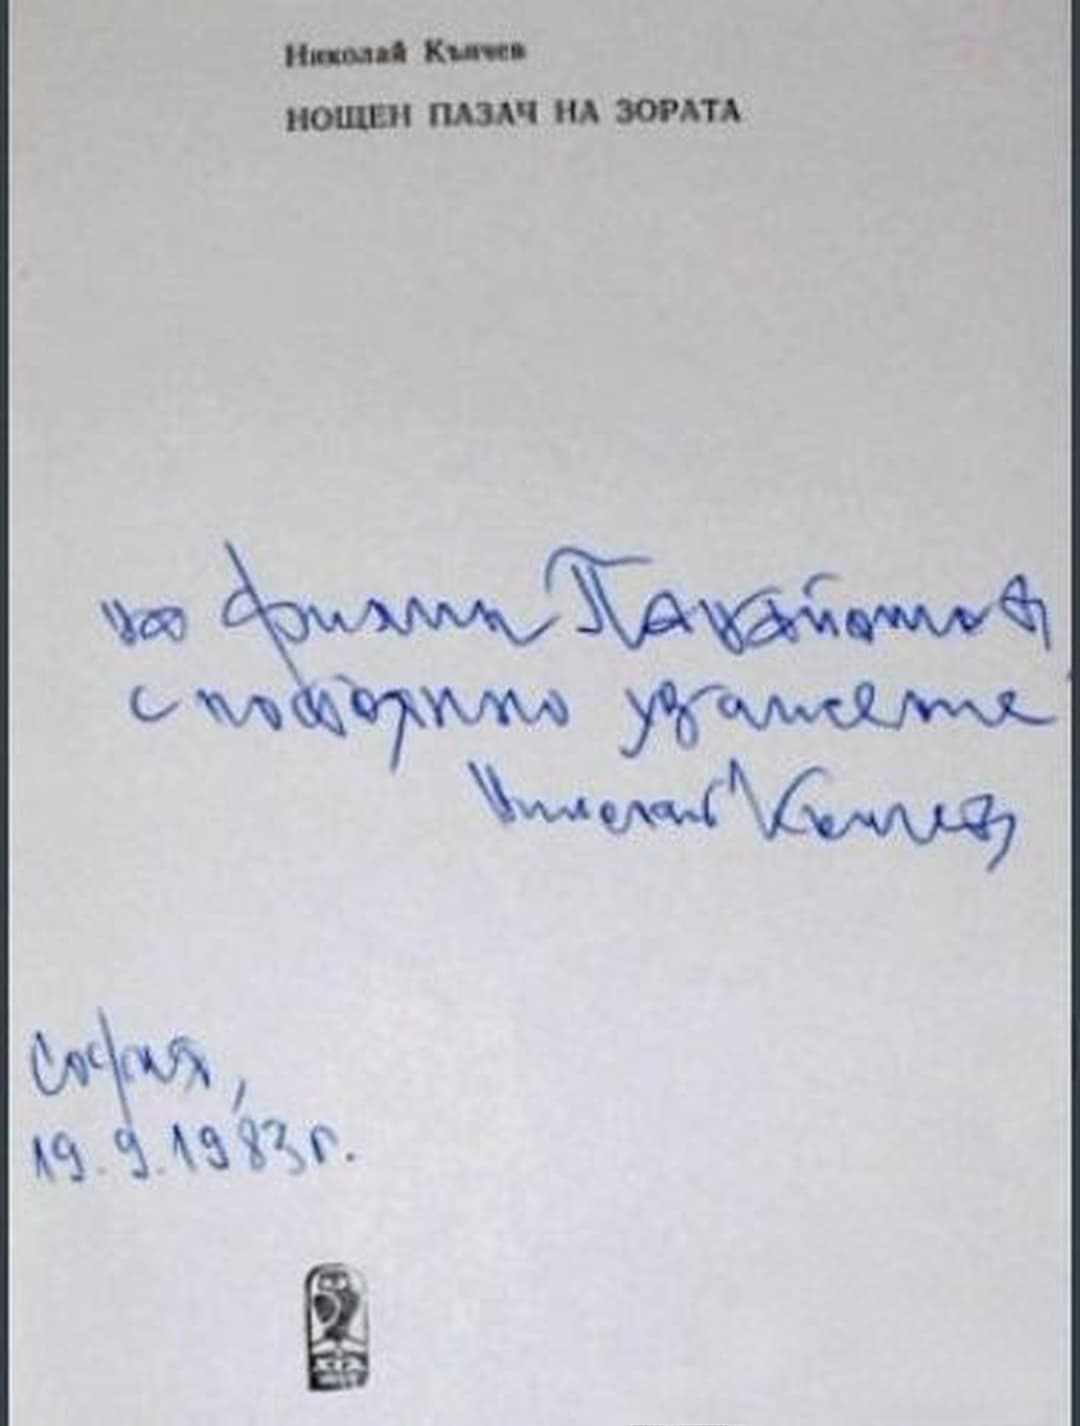 Николай Кънчев
НОЩЕН ПАЗАЧ НА ЗОРАТА
на Филип Панайотов
с уважение
Николай Кънчев
София,
19.9.1983 г.